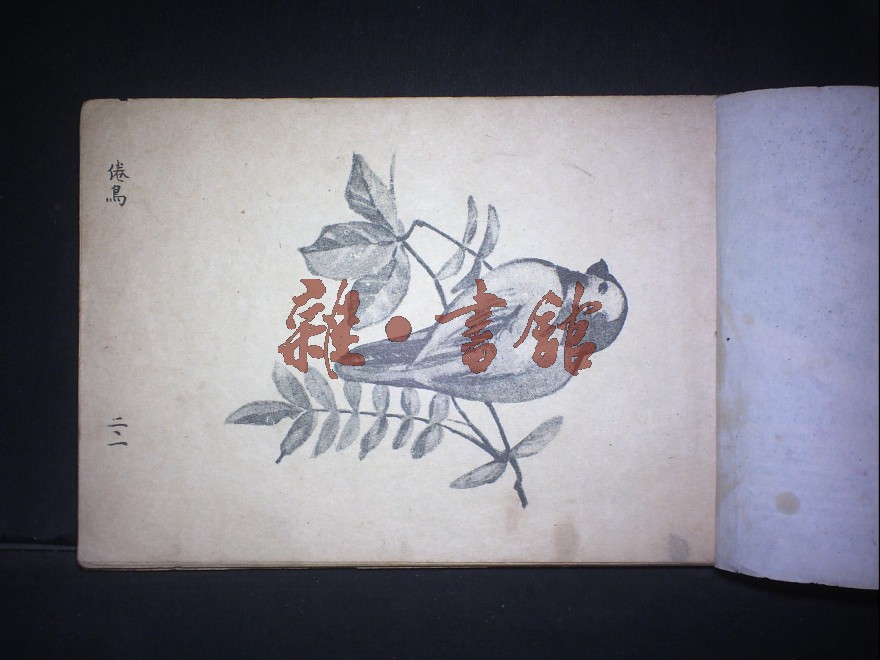 倦鳥
雜·書館
二·一